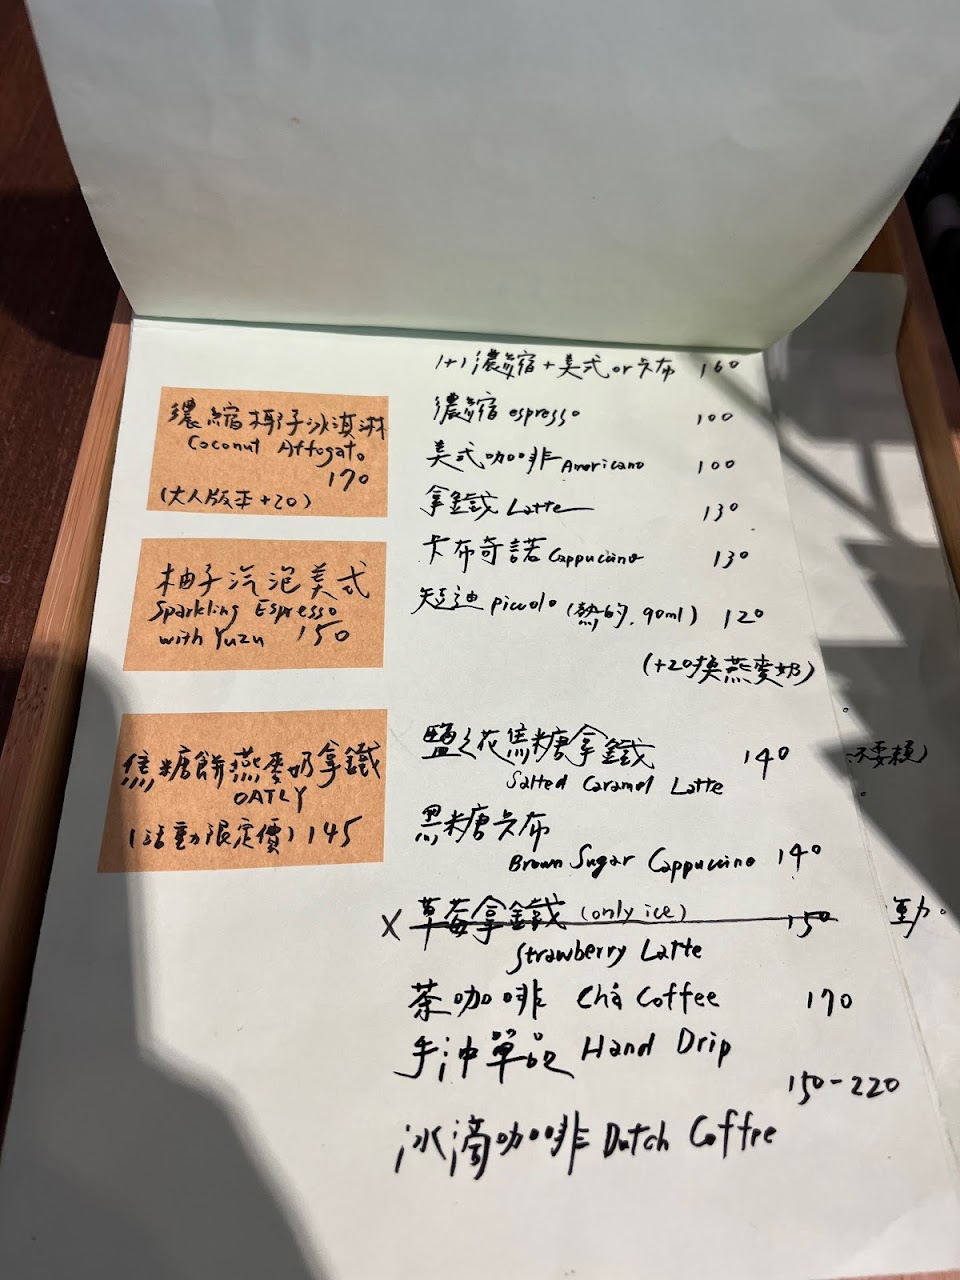 濃縮椰子冰淇淋
Coconut Affogato
170
(大人版本+20)
柚子汽泡美式
Sparkling Espresso
with Yuzu 150
焦糖餅燕麥奶拿鐵
OATLY
(活動限定價) 145
1+1濃縮+美式or卡布 160
濃縮 espresso 100
美式咖啡 Americano 100
拿鐵 Latte 130
卡布奇諾 Cappuccino 130
短迪 piccolo (熱的, 90ml) 120
(+20換燕麥奶)
鹽之花焦糖拿鐵 140
Salted Caramel Latte
黑糖卡布
Brown Sugar Cappuccino 140
X 草莓拿鐵 (only ice) 150
Strawberry Latte
茶咖啡 Chá Coffee 170
手沖單品 Hand Drip
150-220
冰滴咖啡 Dutch Coffee
動。